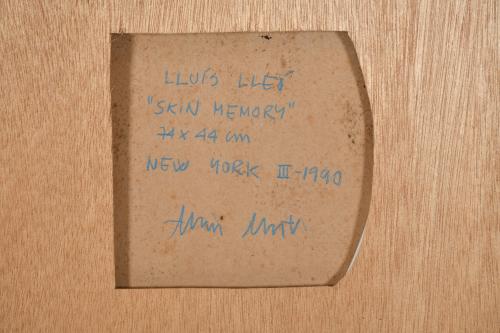 LLUÍS LLEÓ
"SKIN MEMORY"
74 x 44 cm
NEW YORK III-1990